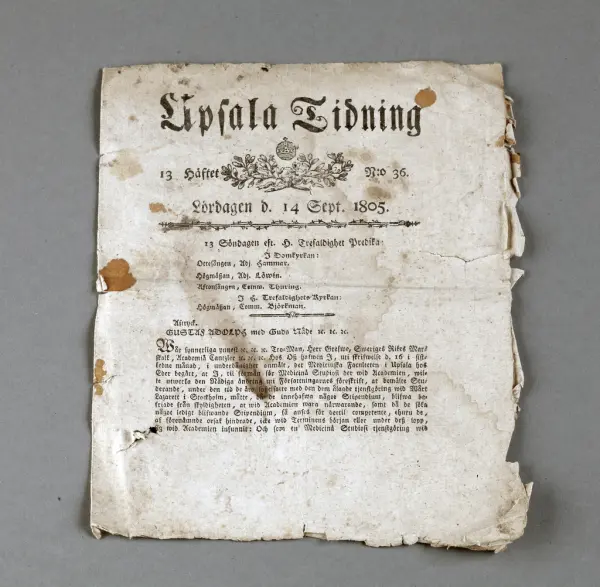 Upsala Tidning
13 Häftet N:o 36.
Lördagen d. 14 Sept. 1805.
13 Söndagen eft. H. Trefaldighet Predika:
I Domkyrkan:
Ottesången, Adj. Hammar.
Högmäßan, Adj. Löwén.
Aftonsången, Comm. Thuring.
I H. Trefaldighets-Kyrkan:
Högmäßan, Comm. Björkman.
Aftryck.
GUSTAF ADOLPH med Guds Nåde ꝛc. ꝛc. ꝛc.
Wår synnerliga ynnest ꝛc. ꝛc. ꝛc. Tro-Man, Herr Grefwe, Sweriges Rikes Mars
skalk, Academiæ Cantzler ꝛc. ꝛc. ꝛc. Hos Oß hafwen J, uti skrifwelse d. 16 i sist-
ledne månad, i underdånighet anmält, det Medicinska Faculteten i Upsala hos
Eder begärt, at J, til förmån för Medicinæ Studiosi der wid Academien, wille
utwerka den Nådiga ändring uti Författningarnes föreskrift, at bemälte Stu-
derande, under den tid de ämnade wid Wårt
Lazarett i Stockholm, måtte, de innehafwa något Stipendium, blifwa be-
friade från skyldigheten, at wid Academien wara närwarande, samt då de söka
något ledigt blifwande Stipendium, få anses för dertil competente, ehuru de,
af förenämnde orsak hindrade, icke wid Terminens början eller under deß lopp,
sig wid Academien infunnit: Och som en Medicinæ Studiosi tjenstgöring wid